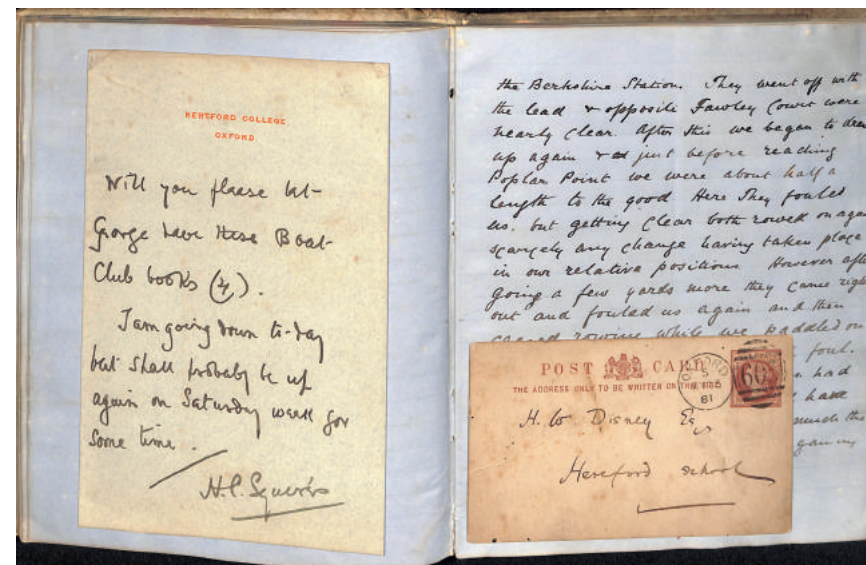 HERTFORD COLLEGE
OXFORD
Will you please let
George have these Boat
Club books (4).
I am going down to-day
but shall probably be up
again on Saturday week for
some time.
the Berkshire Station. They went off with
the lead & opposite Fawley Court were
nearly clear. After this we began to draw
up again & just before reaching
Poplar Point we were about half a
length to the good Here They fouled
us. but getting clear both rowed on again
scarcely any change having taken place
in our relative positions However after
going a few yards more they came right
out and fouled us again and then
ceased rowing while we paddled on
foul.
had
have
much the
POST CARD
THE ADDRESS ONLY TO BE WRITTEN ON THIS SIDE
OXFORD
81
603
H. W Disney Esq
Hereford School